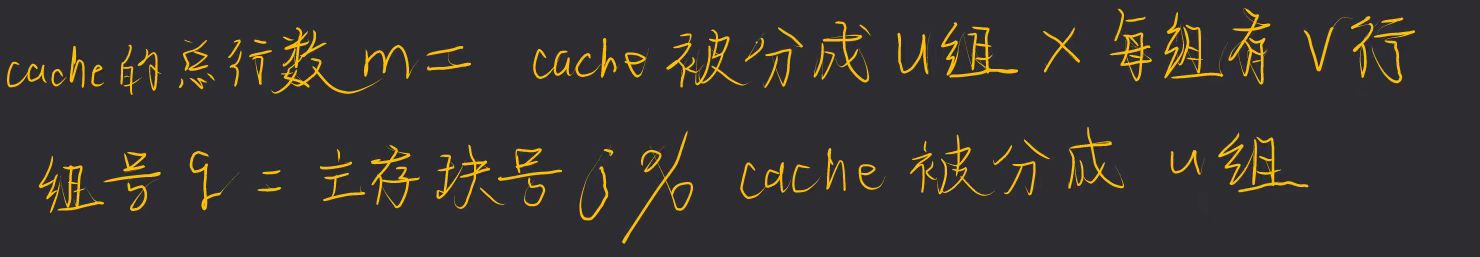 cache的总行数 m = cache被分成u组 × 每组有 v行
组号 q = 主存块号 j % cache 被分成 u组